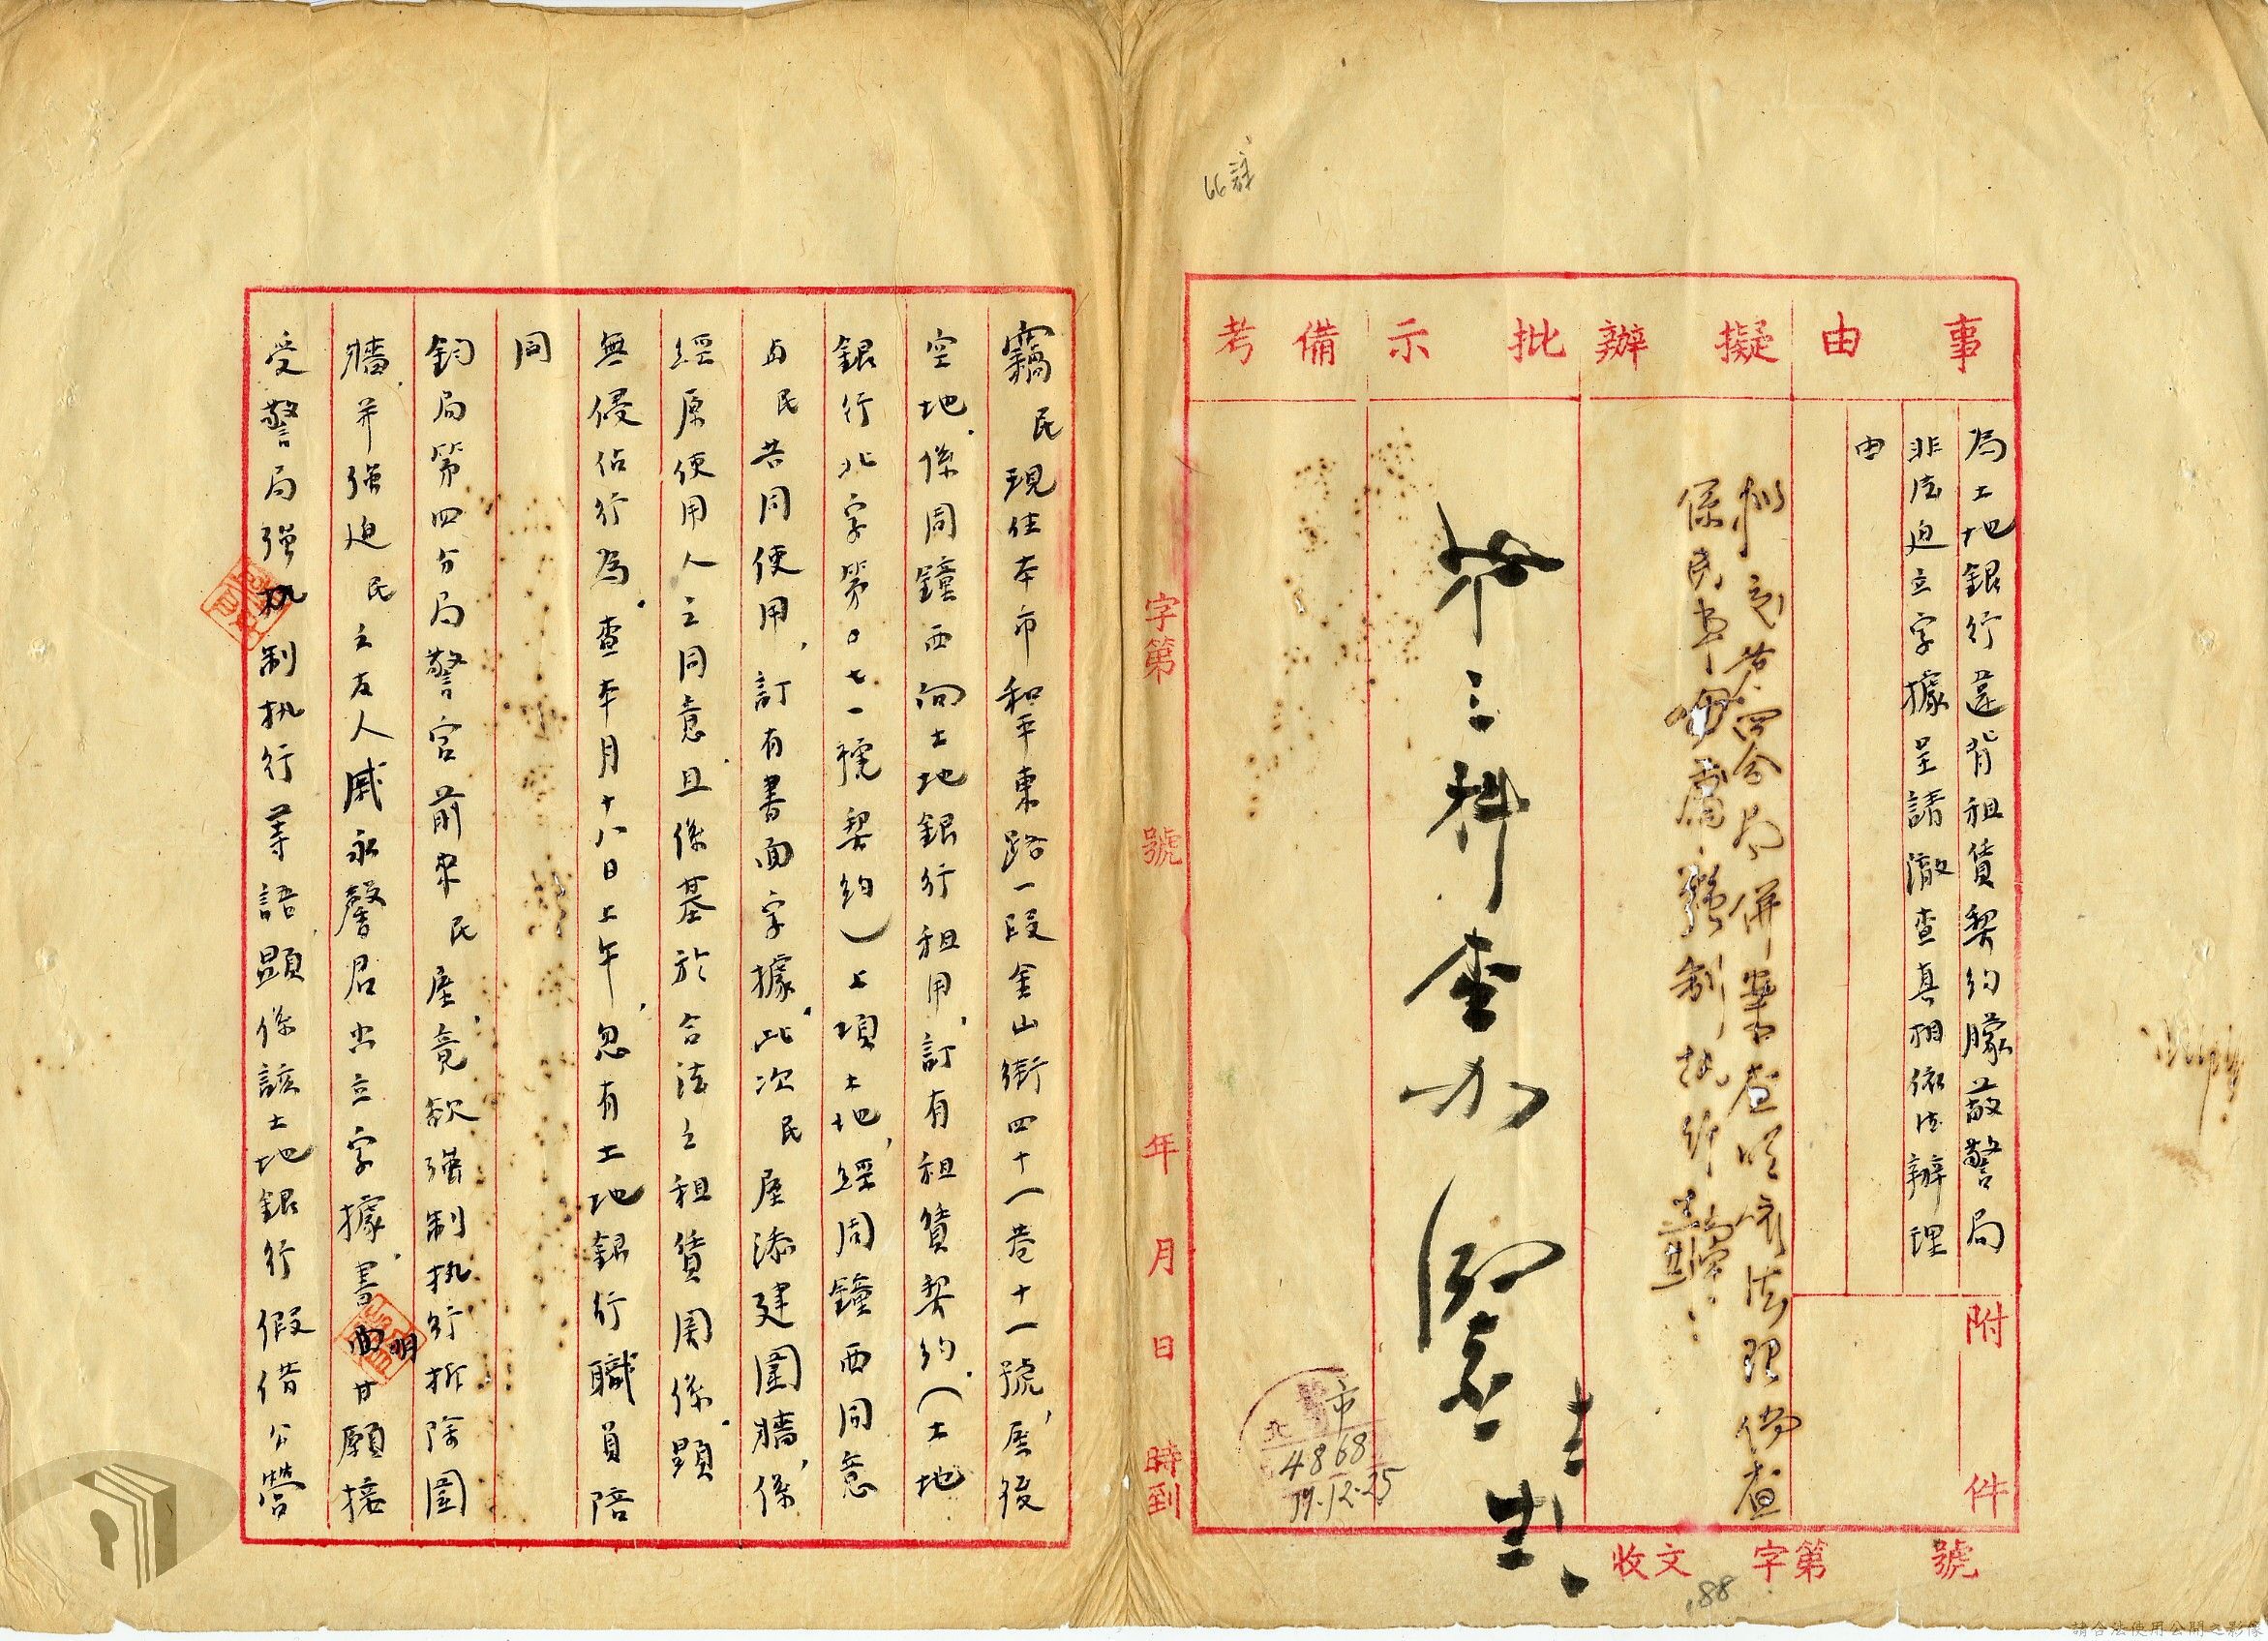 事由
擬辦
批示
備考
為土地銀行違背租賃契約矇蔽警局
非法迫立字據呈請澈查真相依法辦理
由
附件
第三科查办
字第 號 年 月 日 時到
收文 字第 號
市
北
4868
39.12.25
188
66
竊民現住本市和平東路一段金山街四十一巷十一號,屋後
空地.係周鐘西向土地銀行租用,訂有租賃契約.(土地
銀行北字第0七一號契約)上項土地,經周鐘西同意
與民共同使用,訂有書面字據.此次民屋添建圍牆,係
經原使用人之同意.且係基於合法之租賃関係.顯
無侵佔行為.查本月十八日上午,忽有土地銀行職員陪
同
鈞局第四分局警官前來民屋,竟欲強制执行拆除圍
牆.并強迫民之友人戚永馨君出立字據.書明甘願接
受警局強制执行等語.顯係該土地銀行假借公營
請合法使用公開之影像